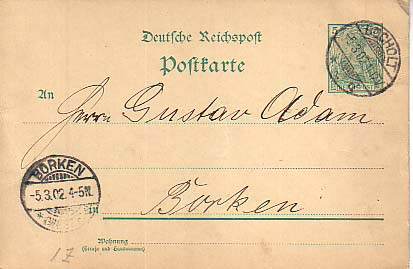 Deutsche Reichspost
Postkarte
5
BOCHOLT
5.3.02
An
Herrn Gustav Adam
BORKEN
-5.3.02.4-5N.
in
Borken
Wohnung
(Straße und Hausnummer)
17